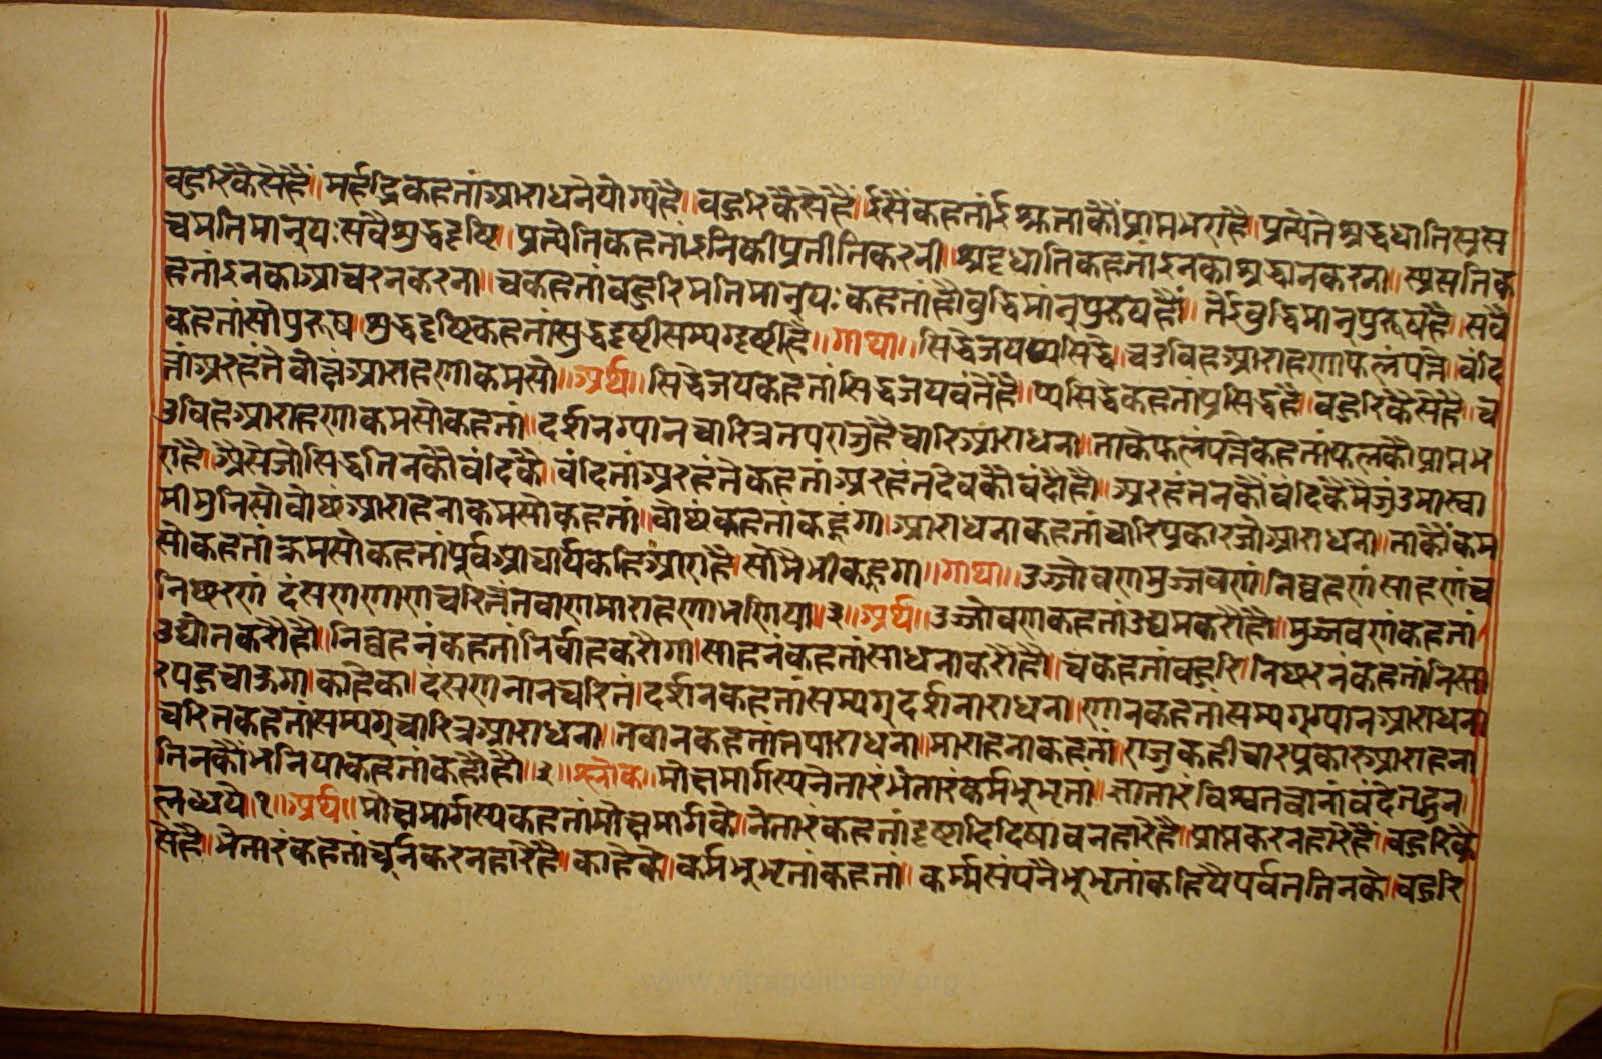 वहुरिकैसेहै॥ मर्हद्भिकहतां आराधनेयोग्यहै॥ वहुरिकैसेहै॥ ईसैंकहतांईस्मताकौंप्राप्तभएाहै॥ प्रत्येतेश्रद्दधातिस्पृस
चमतिमान्यः सवैशुद्धदृष्टि॥ प्रत्येतिकहतांइनिकीप्रतीतिकरनी॥ श्रद्दधातिकहतांइनकाश्रद्धानकरना॥ स्पृसतिक
हतांइनकाआचरनकरना॥ चकहतांवहुरिमतिमान्यः कहतांहौवुद्धिमांन्पुरुषहौं॥ तेईवुद्धिमान्पुरुषहै॥ सवै
कहतांसोपुरुष॥ शुद्धदृष्टिकहतांसुद्धदृष्टीसम्यग्दृष्टीहै॥ गाथा॥ सिद्धेजयप्पसिद्धे॥ चउविहआराहणाफलंपत्ते॥ वंदि
त्तांअरहंतेवोछंआराहणाकमसो॥ अर्थ॥ सिद्धेजयकहतांसिद्धजयवंतैहै॥ प्पसिद्धेकहतांप्रसिद्धहै॥ वहुरिकैसेहै॥ च
उविहआराहणाकमसोकहतां॥ दर्शनग्यानचारित्रतपराजुहैचारिआंराधना॥ ताकेफलंपत्तेकहतांफलकौप्राप्तभ
एांहै॥ अैसेजोसिद्धतिनकौवंदिकै॥ वंदितांअरहंतेकहतांअरहंतदेवकौवंदौहौं॥ अरहंतनकौंवंदिकैमैजुंउमास्वा
मीमुनिसोवोछंआराहनाकमसोकहतां॥ वोछंकहतांकहूंगा॥ आराधनाकहतांचारिप्रकारजोआराधना॥ ताकौंकम
सोकहतांक्रमसोकहतांपूर्वआचार्यकहिआएाहै॥ सोमैभीकहूगा॥ गाथा॥ उज्जोवणमुज्जवणं॥ निव्वहणंसाहणंच
निछरणं दंसणणाणचरितंतवाणमाराहणाभणिया॥२॥ अर्थ॥ उज्जोवणकहतांउद्यमकरौंहौं॥ मुज्जवणंकहतां
उद्योतकरौंहौं॥ निव्वहनंकहतांनिर्वाहकरौंगा॥ साहनंकहतांसाधनाकरौंहौं॥ चकहतांवहुरि॥ निछरनंकहतांनिस्ता
रपहुचाऊगा॥ काहेका॥ दंसणनानचरितं॥ दर्शनकहतांसम्यग्दर्शनाराधना॥ णानकहतांसम्यग्ग्यानआराधना
चरितकहतांसम्यग्चारित्रआराधना॥ तवानकहतांतपाराधना॥ माराहनाकहतां॥ राजुकहीचारप्रकारआराहना
तिनकौंभनियाकहतांकहौंहौं॥२॥ श्लोक॥ मोक्षमार्गस्यनेतारंभेतारंकर्मभूभृतां॥ ज्ञातारंविश्वतत्वानांवंदेतद्गुन
लब्धये॥१॥ अर्थ॥ मोक्षमार्गस्यकहतांमोक्षमार्गके॥ नेतारंकहतांदृष्टादिदिषावनहारैहै॥ प्राप्तकरनहारेहैं॥ वहुरिकै
सेहै॥ भेतारंकहतांचूर्नकरनहारेहै॥ काहेके॥ कर्मभूभृतांकहतां॥ कर्म्मसंपतेभूभृतांकहियेपर्वततिनके॥ वहुरि
www.vitragolibrary.org